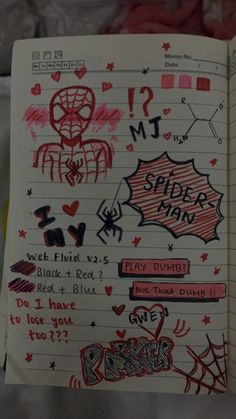 Memo No.
Date
Mo Tu We Th Fr Sa Su
!?
MJ
H₂N
SPIDER-
MAN
I
NY
Web Fluid v2.5
Black + Red ?
Red + Blue
PLAY DUMB!
Not That DUMB!!
Do I have
to lose you
too???
GWEN
PARKER